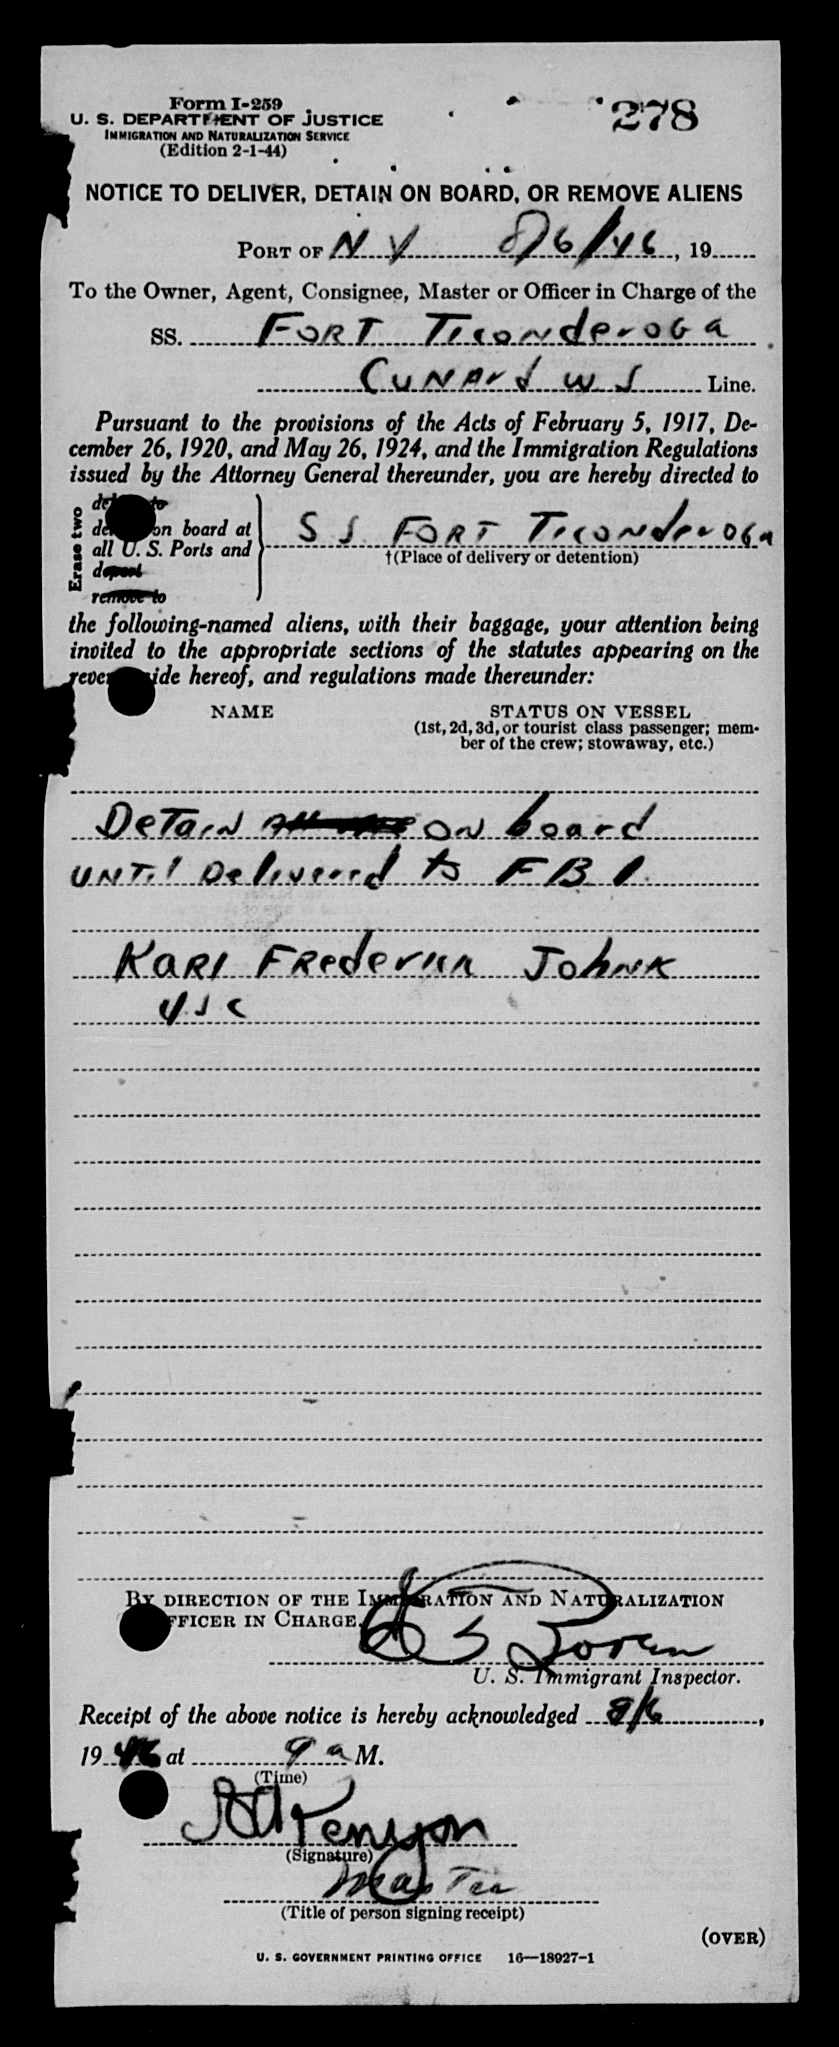 Form I-259
U. S. DEPARTMENT OF JUSTICE
IMMIGRATION AND NATURALIZATION SERVICE
(Edition 2-1-44)
278
NOTICE TO DELIVER, DETAIN ON BOARD, OR REMOVE ALIENS
PORT OF N Y 8/6/46, 19
To the Owner, Agent, Consignee, Master or Officer in Charge of the
SS. FORT TICONDEROGA
CUNARD W S Line.
Pursuant to the provisions of the Acts of February 5, 1917, De-
cember 26, 1920, and May 26, 1924, and the Immigration Regulations
issued by the Attorney General thereunder, you are hereby directed to
Erase two
on board at
all U. S. Ports and
deport
remove to
S S FORT TICONDEROGA
†(Place of delivery or detention)
the following-named aliens, with their baggage, your attention being
invited to the appropriate sections of the statutes appearing on the
hereof, and regulations made thereunder:
NAME
STATUS ON VESSEL
(1st, 2d, 3d, or tourist class passenger; mem-
ber of the crew; stowaway, etc.)
DETAIN ON board
UNTIL Delivered to F B I
KARL JOHNK
USC
BY DIRECTION OF THE IMMIGRATION AND NATURALIZATION
OFFICER IN CHARGE.
U. S. Immigrant Inspector.
Receipt of the above notice is hereby acknowledged 8/6,
1946 at 9 a M.
(Time)
Kenyon
(Signature)
Master
(Title of person signing receipt)
(OVER)
U. S. GOVERNMENT PRINTING OFFICE 16—18927-1